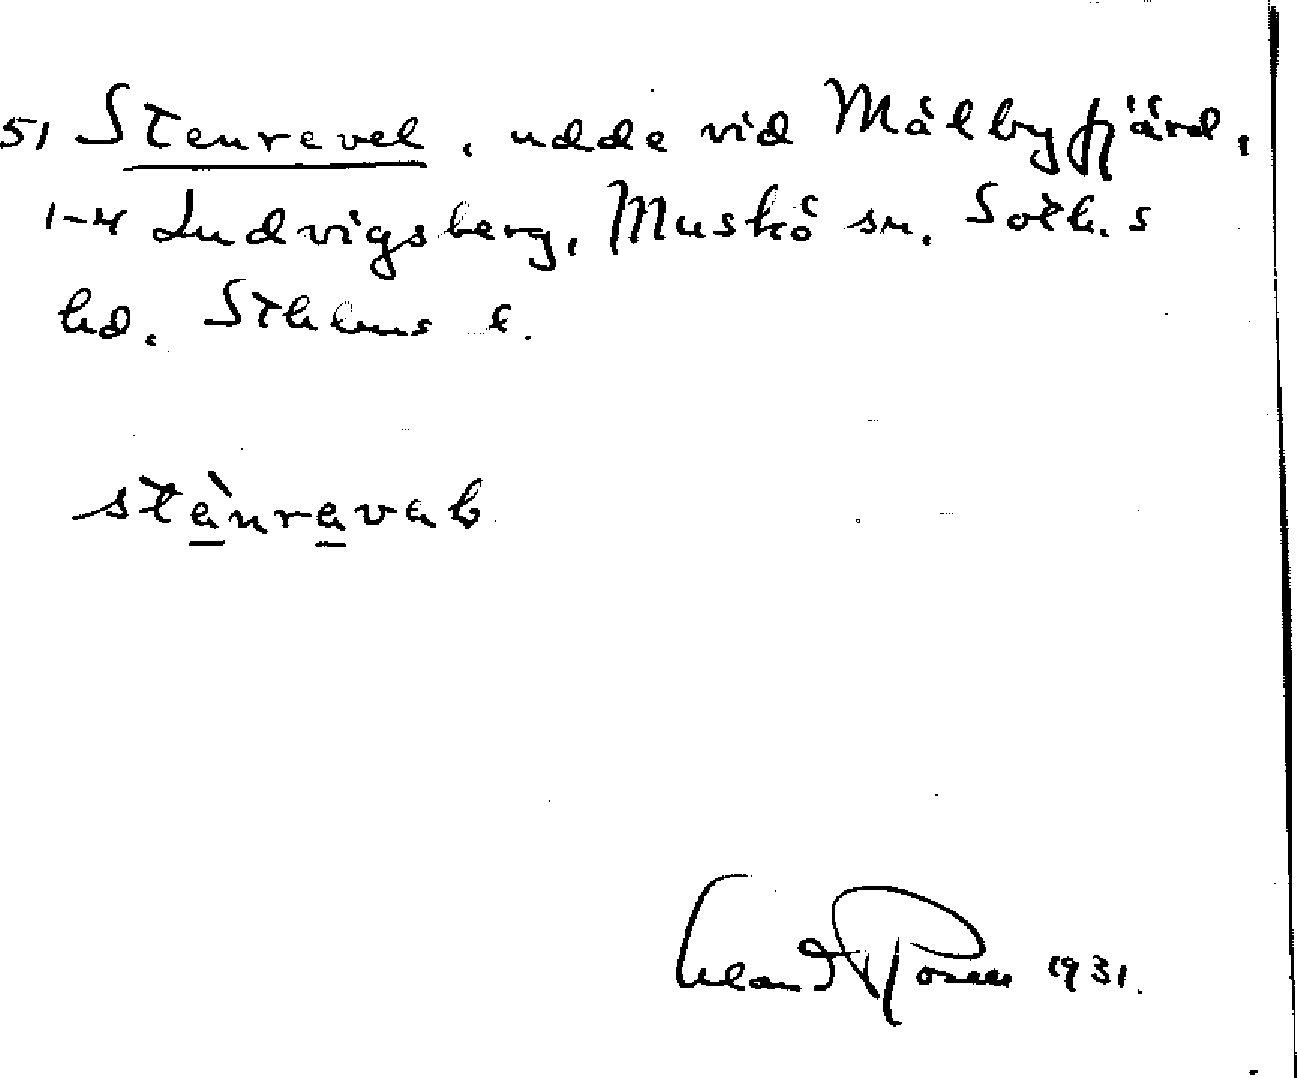 51 Stenrevel, udde vid Målbyfjärd,
1-4 Ludvigsberg, Muskö sn. Soth.s
hd. Sthlms l.
1931.